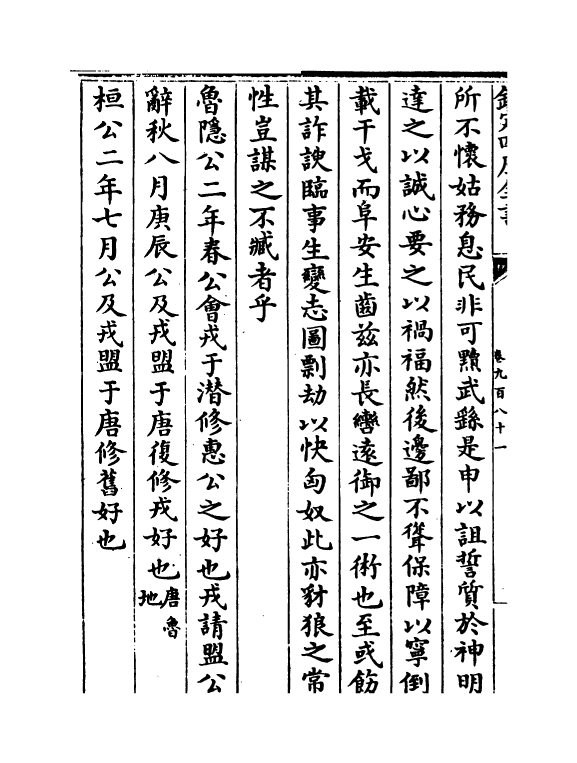 欽定四庫全書
卷九百八十一
所不懷姑務息民非可黷武繇是申以詛誓質於神明
達之以誠心要之以禍福然後邊鄙不聳保障以寧倒
載干戈而阜安生齒兹亦長轡遠御之一術也至或飭
其詐諛臨事生變志圖剽劫以快匈奴此亦豺狼之常
性豈謀之不臧者乎
魯隱公二年春公會戎于潜修惠公之好也戎請盟公
辭秋八月庚辰公及戎盟于唐復修戎好也唐魯地
桓公二年七月公及戎盟于唐修舊好也